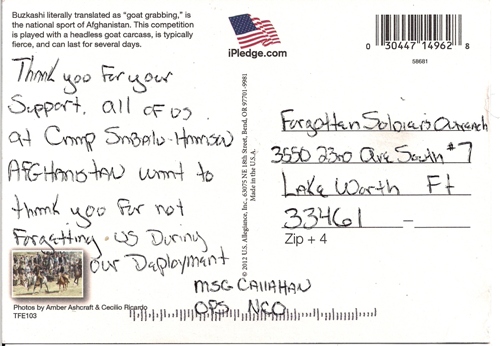 Buzkashi literally translated as "goat grabbing," is
the national sport of Afghanistan. This competition
is played with a headless goat carcass, is typically
fierce, and can last for several days.
iPledge.com
0 30447 14962 8
58681
Thank you for your
Support. all of us
at Camp Sabalu-Harrison
AFGHANISTAN want to
thank you for not
Forgetting us During
our Deployment
MSG CALLAHAN
OPS NCO
© 2012 U.S. Allegiance, Inc., 63075 NE 18th Street, Bend, OR 97701-9981
Made in the U.S.A.
Forgotten Soldiers Outreach
3550 23rd Ave South #7
Lake Worth Fl
33461 –
Zip + 4
Photos by Amber Ashcraft & Cecilio Ricardo
TFE103